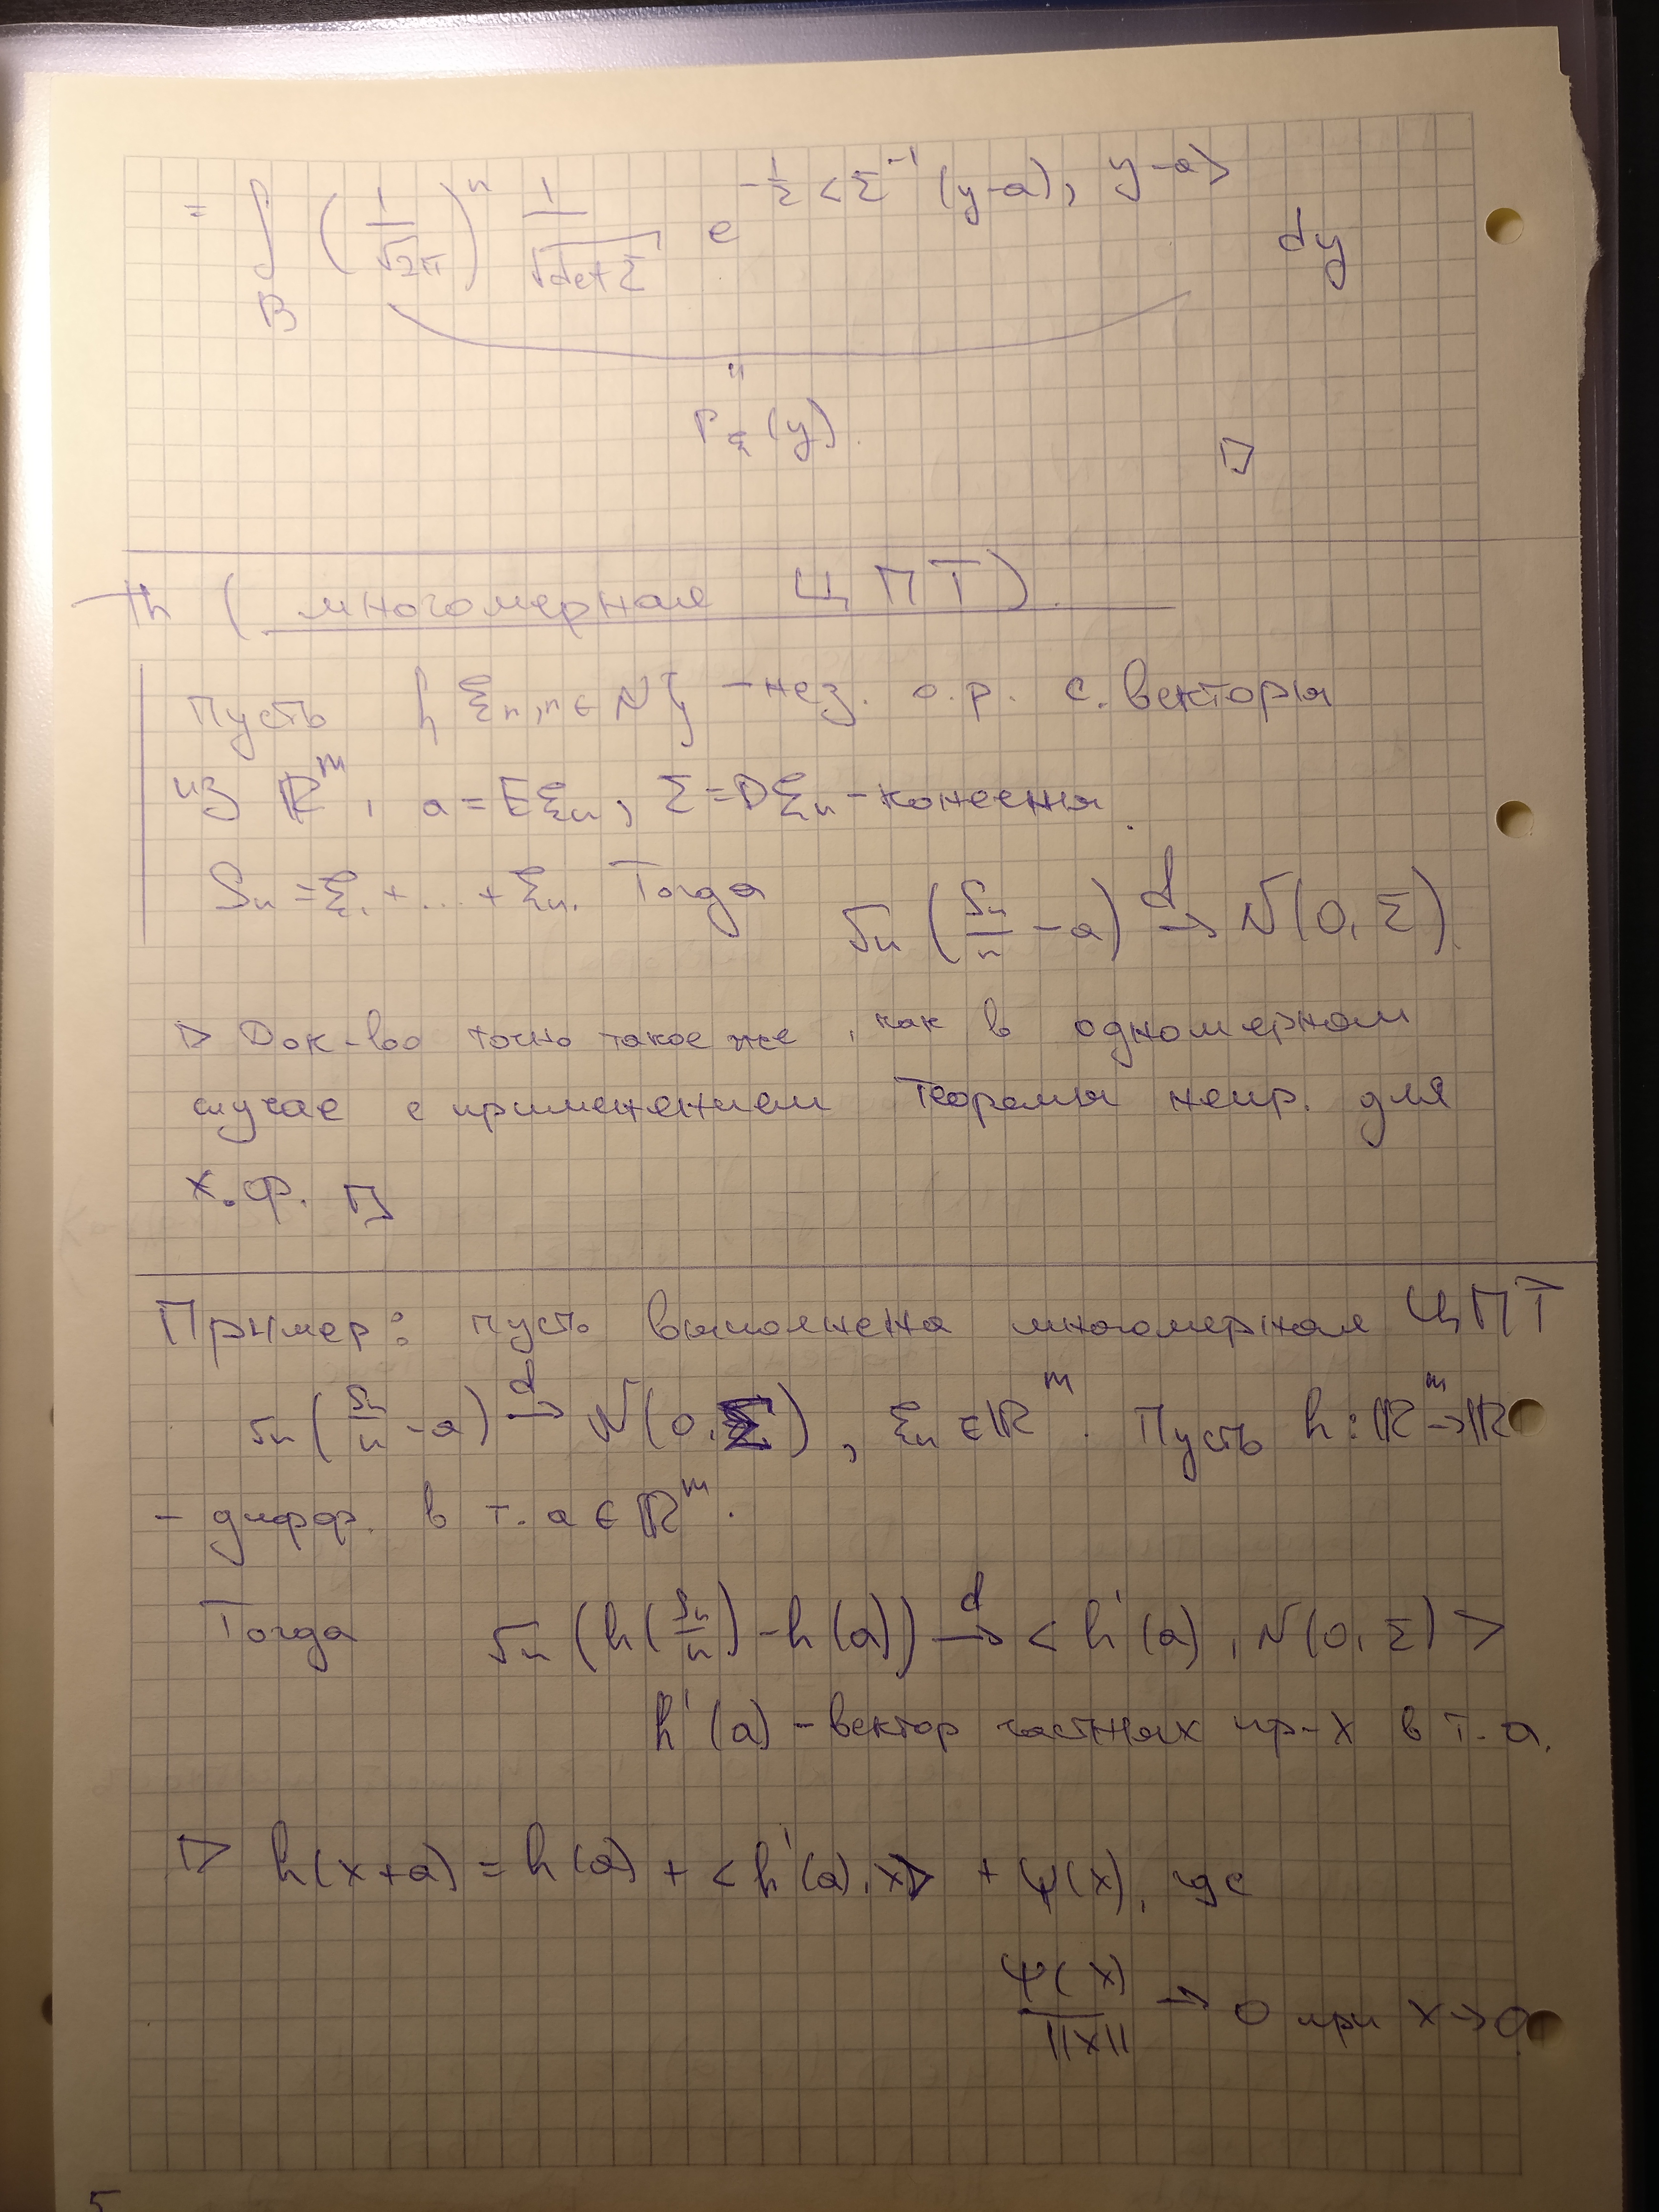 = ∫_B (1/√2π)^n 1/√det Σ e^{-1/2 <Σ^{-1}(y-a), y-a>} dy
"
P_ξ(y).
□
Th (многомерная ЦПТ).
Пусть {ξ_n, n ∈ N} - нез. о.р. с. векторы
из ℝ^m, a = Eξ_n, Σ = Dξ_n - конечны.
S_n = ξ_1 + ... + ξ_n. Тогда √n (S_n/n - a) →^d N(0, Σ).
▷ Док-во точно такое же, как в одномерном
случае с применением Теоремы непр. для
х.ф. □
Пример: пусть выполнена многомерная ЦПТ
√n (S_n/n - a) →^d N(0, Σ), ξ_n ∈ ℝ^m. Пусть h: ℝ^m → ℝ
- дифф. в т. a ∈ ℝ^m.
Тогда √n (h(S_n/n) - h(a)) →^d <h'(a), N(0, Σ)>
h'(a) - вектор частных пр-х в т. a.
▷ h(x+a) = h(a) + <h'(a), x> + ψ(x), где
ψ(x)/||x|| → 0 при x → 0
5